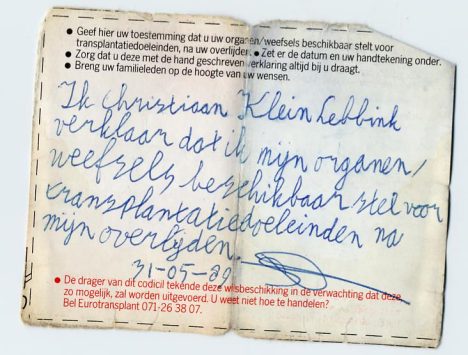 ● Geef hier uw toestemming dat u uw organen/weefsels beschikbaar stelt voor
transplantatiedoeleinden, na uw overlijden. ● Zet er de datum en uw handtekening onder.
● Zorg dat u deze met de hand geschreven verklaring altijd bij u draagt.
● Breng uw familieleden op de hoogte van uw wensen.
Ik Christiaan Klein Lebbink
verklaar dat ik mijn organen/
weefsels beschikbaar stel voor
transplantatiedoeleinden na
mijn overlijden.
31-05-89
● De drager van dit codicil tekende deze wilsbeschikking in de verwachting dat deze,
zo mogelijk, zal worden uitgevoerd. U weet niet hoe te handelen?
Bel Eurotransplant 071-26 38 07.